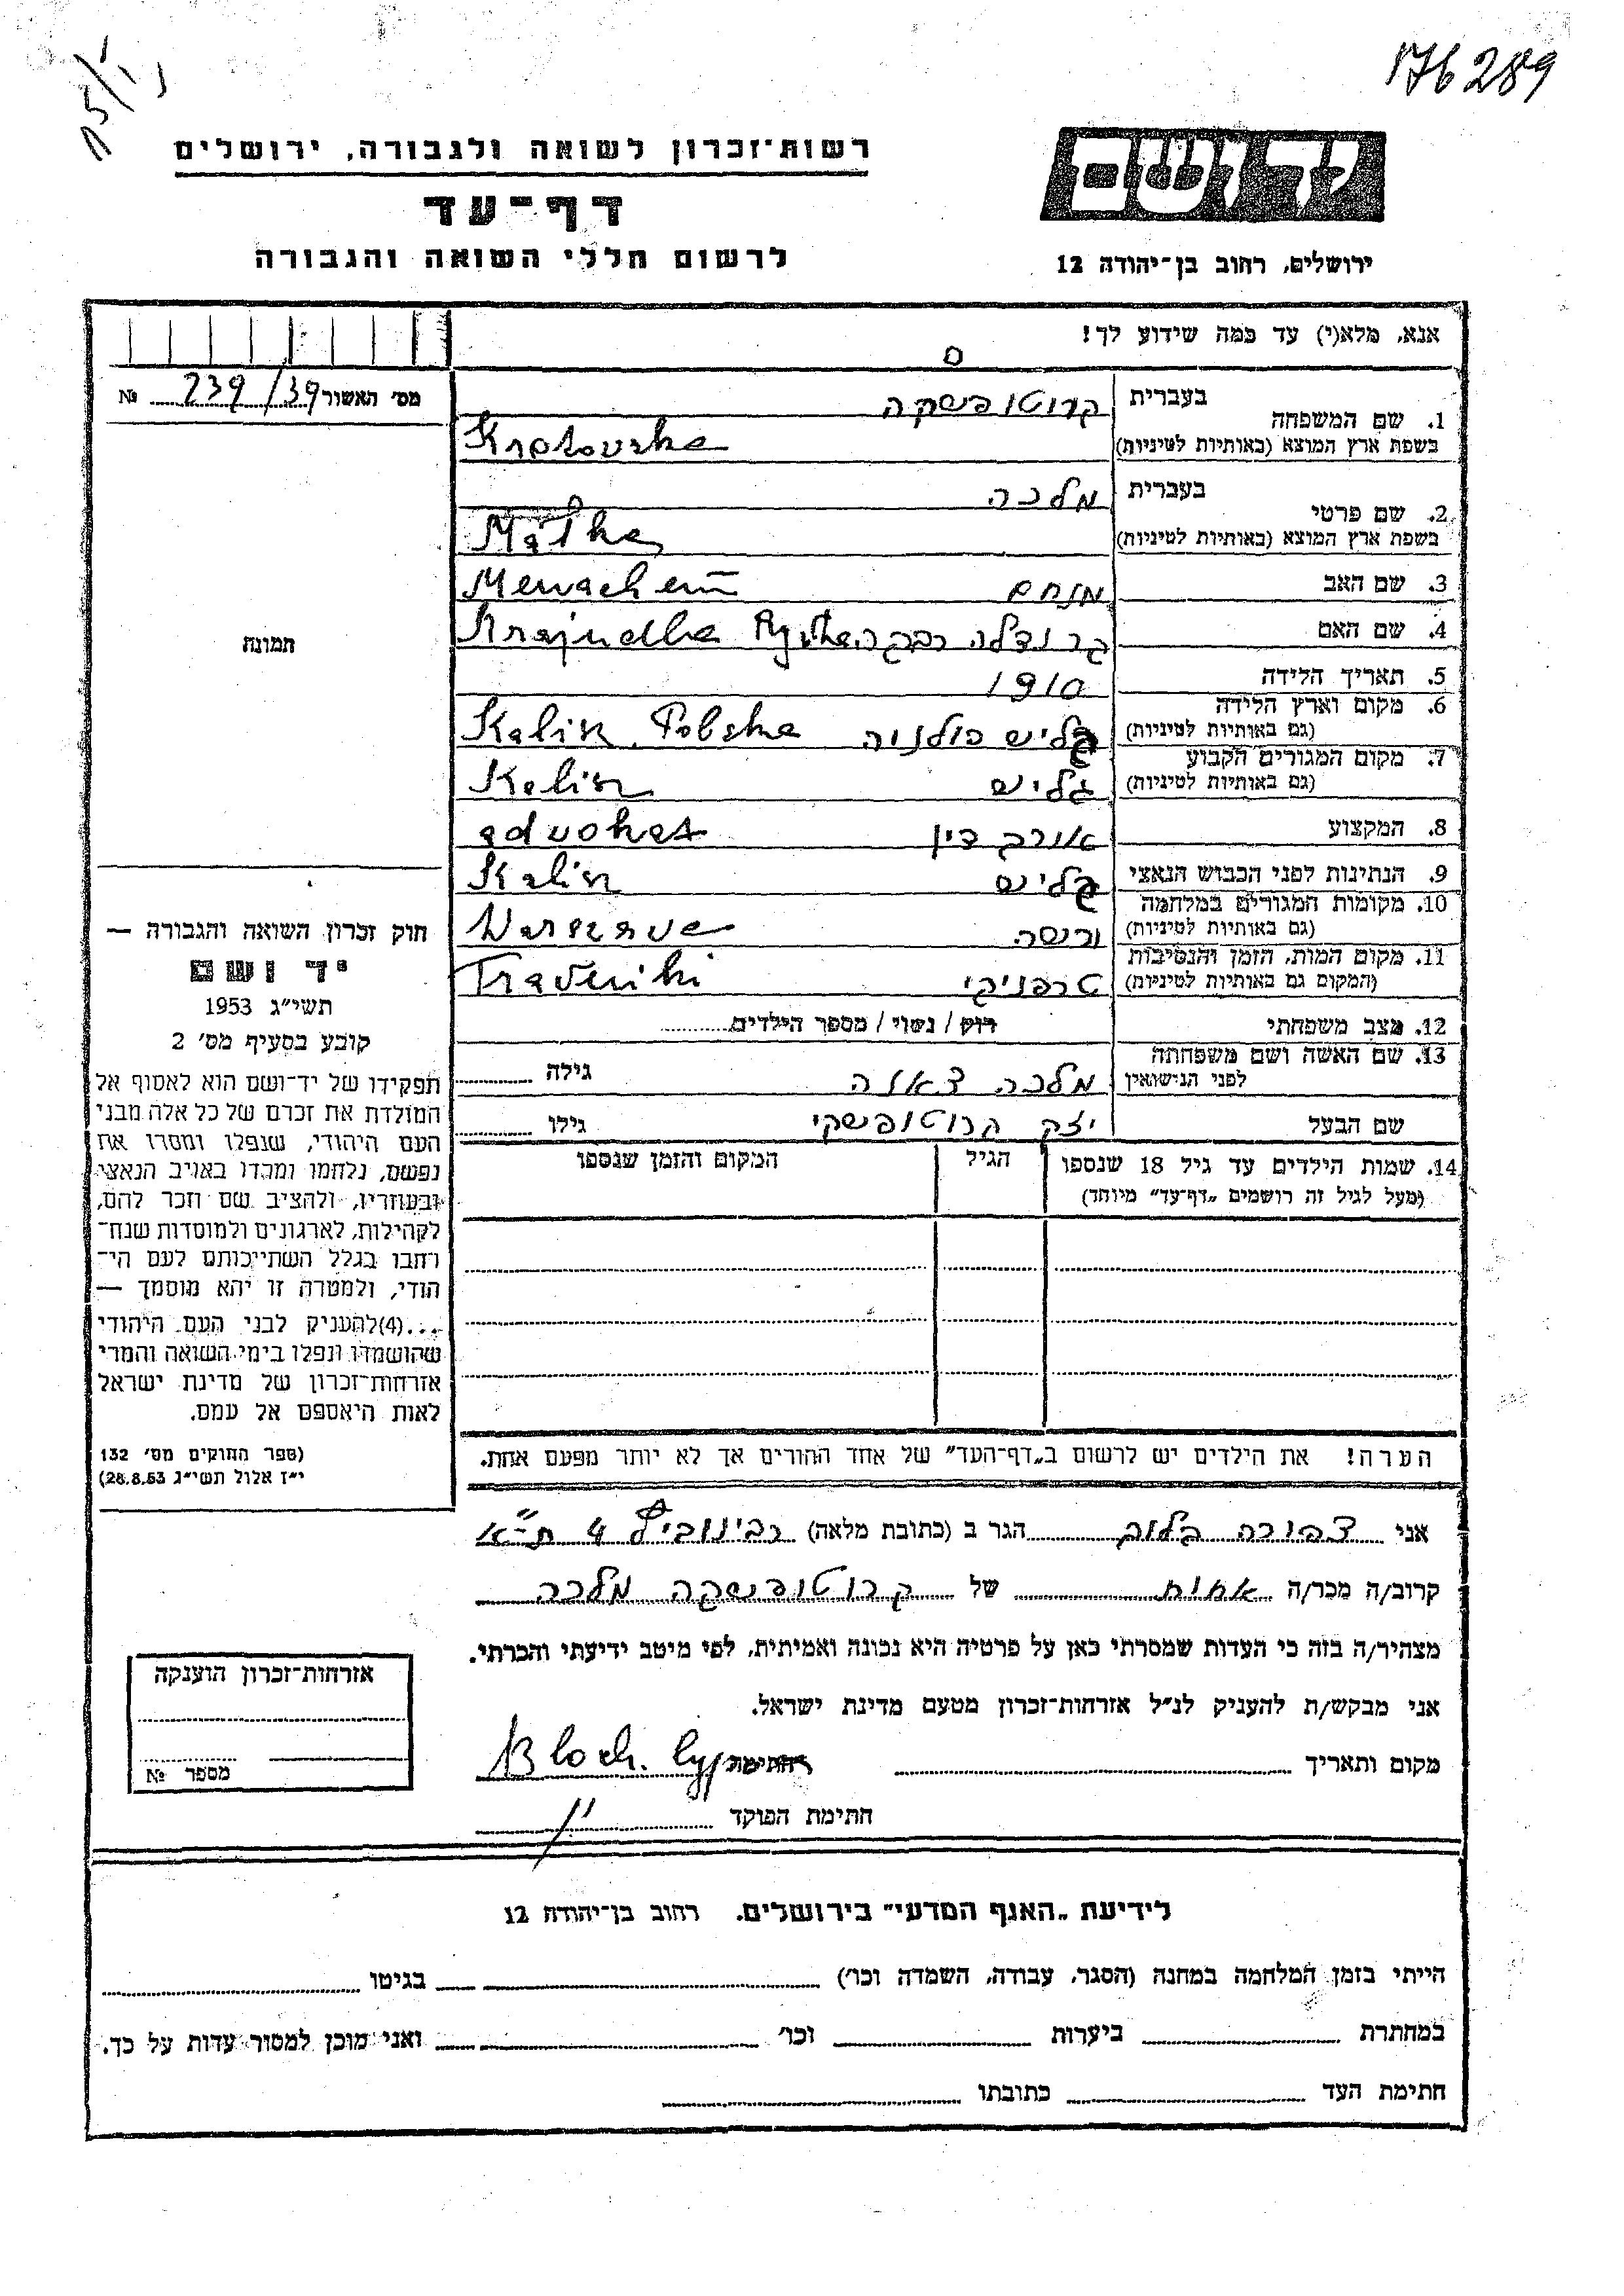 176289
רשות־זכרון לשואה ולגבורה, ירושלים
דף־עד
לרשום חללי השואה והגבורה
יד ושם
ירושלים, רחוב בן־יהודה 12
אנא, מלא(י) עד כמה שידוע לך!
מס׳ האשור 239/39 №
1. שם המשפחה בעברית קרוטופשקה
בשפת ארץ המוצא (באותיות לטיניות)
2. שם פרטי בעברית מלכה
בשפת ארץ המוצא (באותיות לטיניות) Malka
3. שם האב מנחם Menachem
4. שם האם
5. תאריך הלידה 1910
6. מקום וארץ הלידה
(גם באותיות לטיניות) קליש פולניה Kalisz, Polska
7. מקום המגורים הקבוע
(גם באותיות לטיניות) קליש Kalisz
8. המקצוע עורך דין adwokat
9. הנתינות לפני הכבוש הנאצי קליש Kalisz
10. מקומות המגורים במלחמה
(גם באותיות לטיניות) ורשה Warszawa
11. מקום המות, הזמן והנסיבות
(המקום גם באותיות לטיניות) טרפניקי Traveniki
12. מצב משפחתי רוק / נשוי / מספר הילדים
13. שם האשה ושם משפחתה
לפני הנישואין מלכה גילה
שם הבעל קרוטופשקי גילו
14. שמות הילדים עד גיל 18 שנספו הגיל המקום והזמן שנספו
(מעל לגיל זה רושמים „דף־עד״ מיוחד)
הערה! את הילדים יש לרשום ב„דף־העד״ של אחד ההורים אך לא יותר מפעם אחת.
תמונה
חוק זכרון השואה והגבורה —
יד ושם
תשי״ג 1953
קובע בסעיף מס׳ 2
תפקידו של יד־ושם הוא לאסוף אל
המולדת את זכרם של כל אלה מבני
העם היהודי, שנפלו ומסרו את
נפשם, נלחמו ומרדו באויב הנאצי
ובעוזריו, ולהציב שם וזכר להם,
לקהילות, לארגונים ולמוסדות שנח־
רבו בגלל השתייכותם לעם הי־
הודי, ולמטרה זו יהא מוסמך —
...(4)להעניק לבני העם היהודי
שהושמדו ונפלו בימי השואה והמרי
אזרחות־זכרון של מדינת ישראל
לאות היאספם אל עמם.
(ספר החוקים מס׳ 132
י״ז אלול תשי״ג 28.8.53)
אני צפורה בלוך הגר ב (כתובת מלאה) 4 ת״א
קרוב/ה מכר/ה אחות של קרוטופשקה מלכה
מצהיר/ה בזה כי העדות שמסרתי כאן על פרטיה היא נכונה ואמיתית, לפי מיטב ידיעתי והכרתי.
אני מבקש/ת להעניק לנ״ל אזרחות־זכרון מטעם מדינת ישראל.
מקום ותאריך חתימה Bloch
חתימת הפוקד
אזרחות־זכרון הוענקה
מספר №
לידיעת „האגף המדעי״ בירושלים, רחוב בן־יהודה 12
הייתי בזמן המלחמה במחנה (הסגר, עבודה, השמדה וכו׳) בגיטו
במחתרת ביערות וכו׳ ואני מוכן למסור עדות על כך.
חתימת העד כתובתו